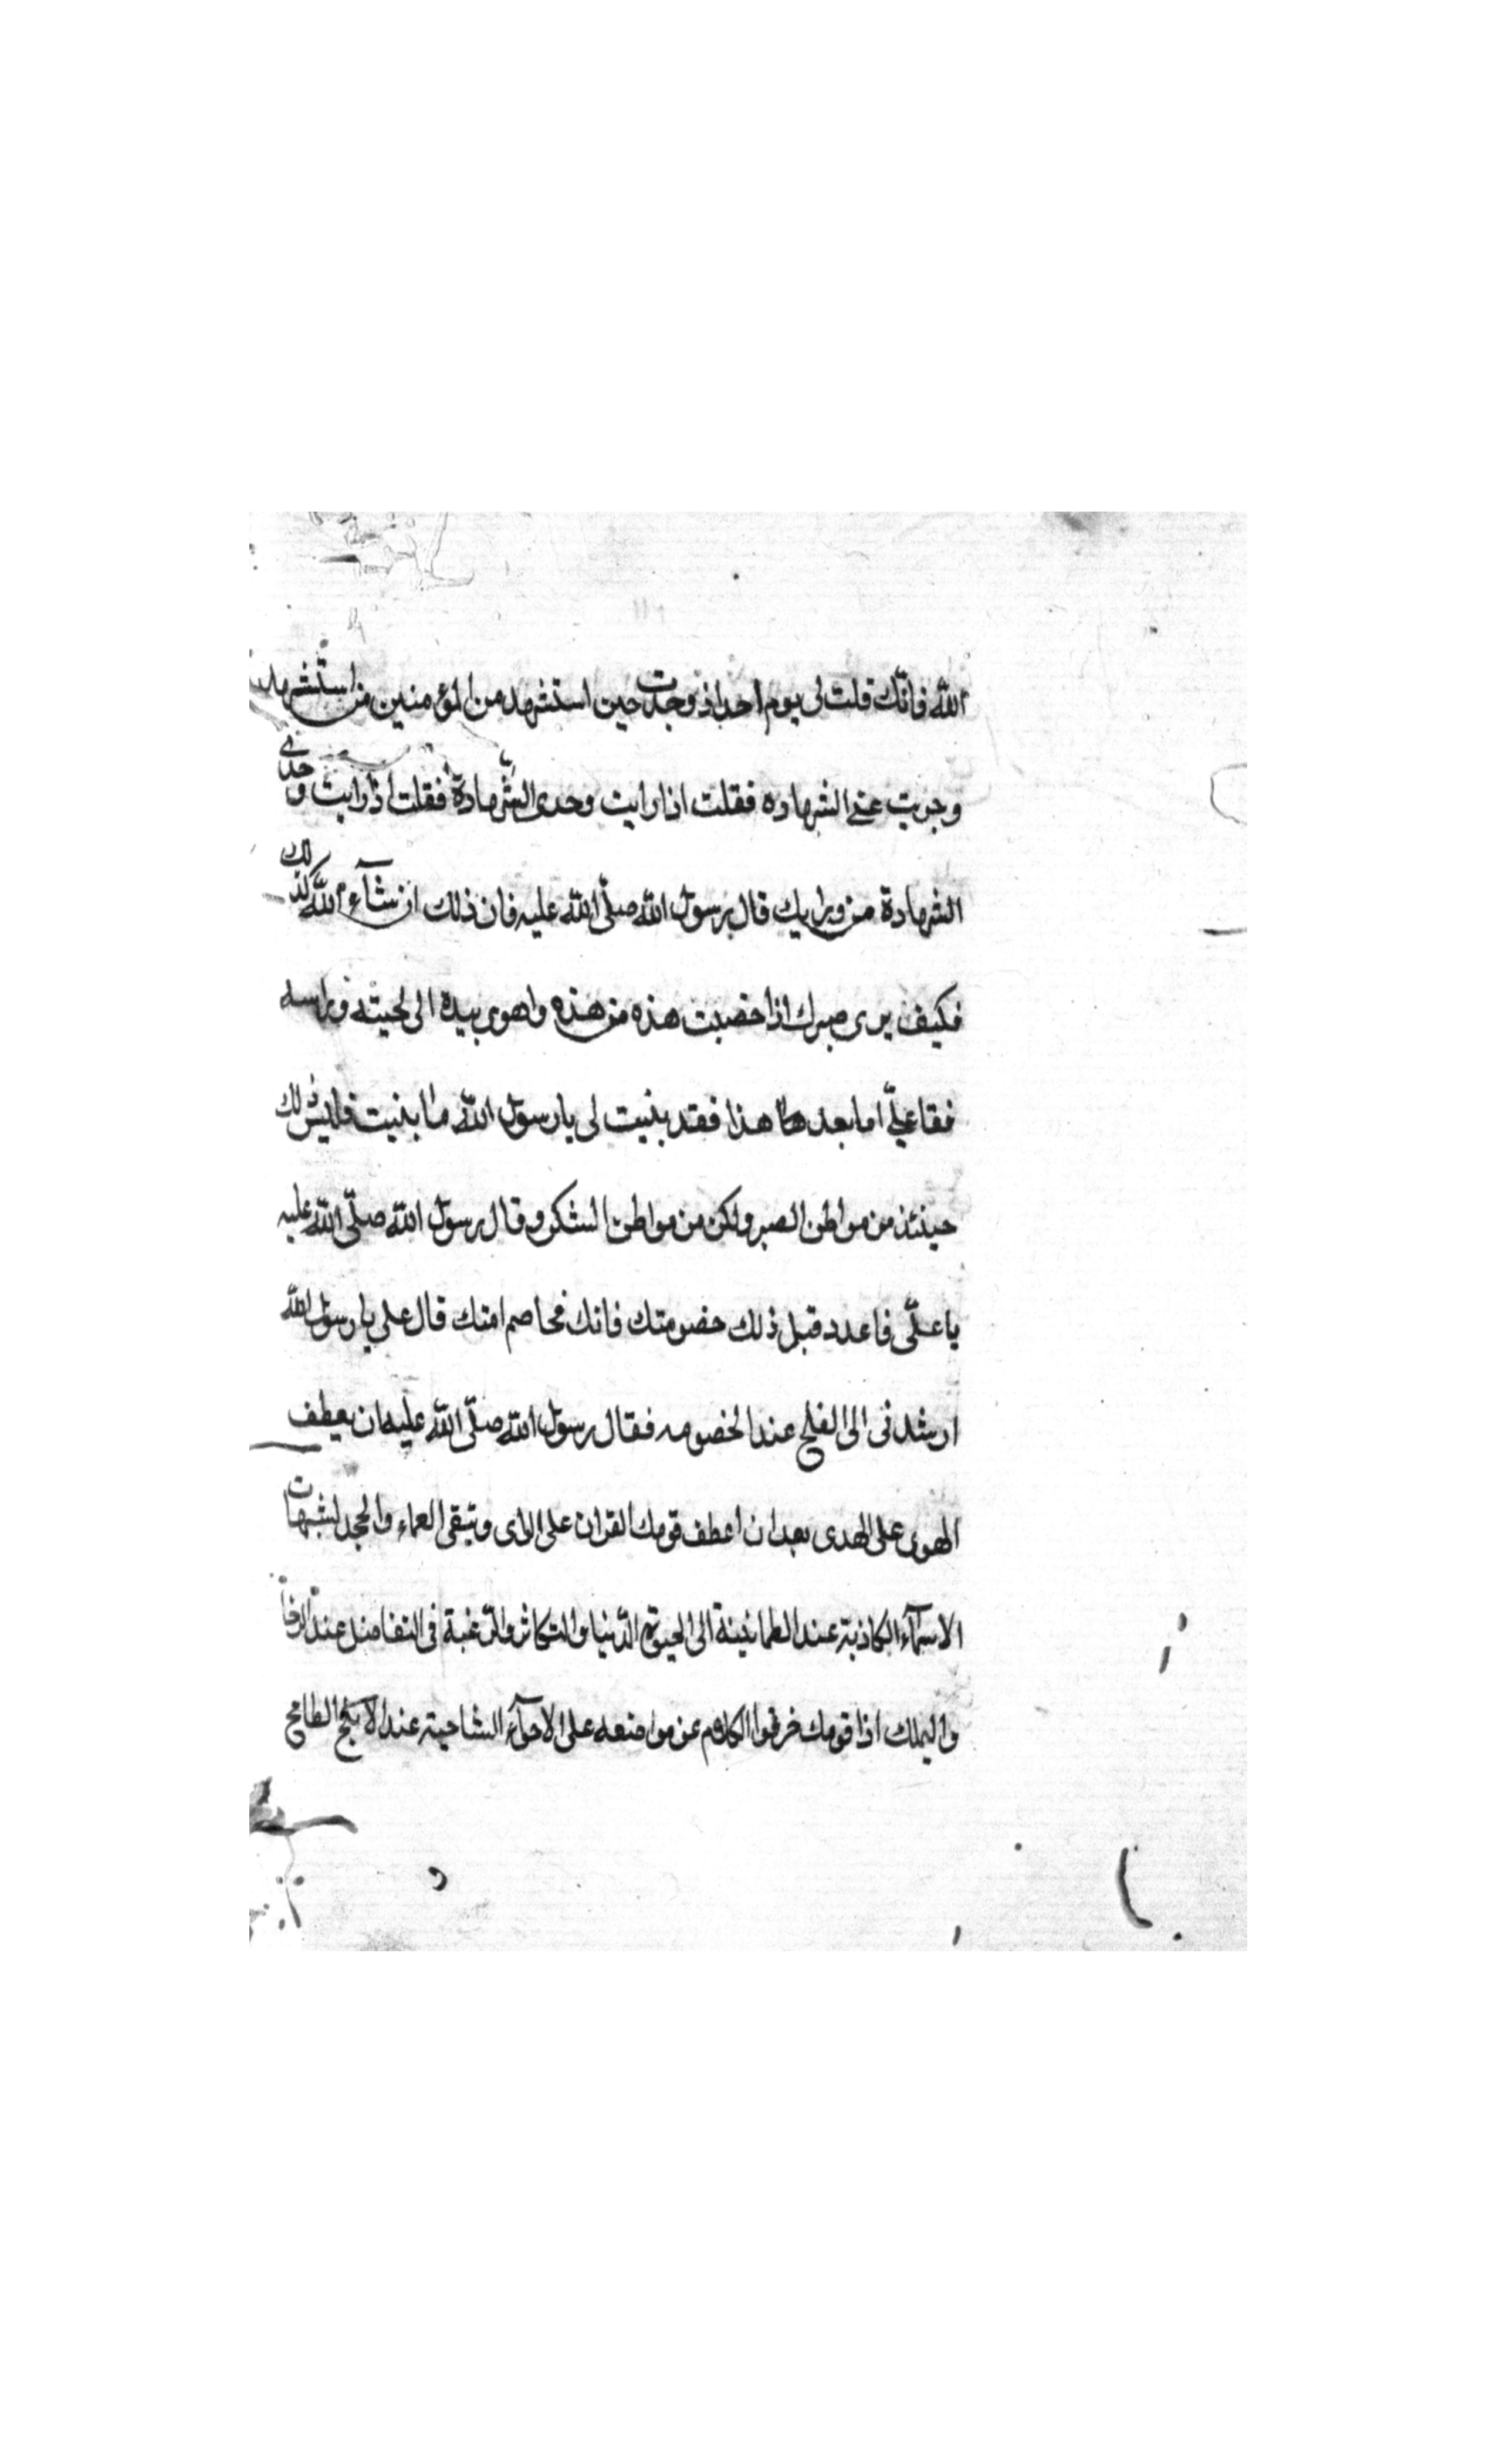 الله فانّك قلت لى يوم احد اذ وجدت حين استشهد من المؤمنين من استشهد
وجريت عني الشهاده فقلت اذا رايت وحدى الشهادة فقلت اذا رايت وحدى
الشهادة من ورايك قال رسول الله صلّى الله عليه فان ذلك ان شآء الله كذلك
فكيف يرى صبرك اذا خضبت هذه من هذه واهوى بيدة الى لحيته وراسه
فقا عليّ اما بعد هذا فقد بنيت لى يا رسول الله ما بنيت فليس ذلك
حينئذ من مواطن الصبر ولكن من مواطن الشكر وقال رسول الله صلّى الله عليه
يا علّى فاعدد قبل ذلك خضومتك فانك مخاصم امتك قال على يا رسول الله
ارشدنى الى الفلج عند الخضومه فقال رسول الله صلّى الله عليه ان يعطف
الهوى على الهدى بعد ان اعطف قومك القران على الراى وتبقى العماء والحجد لشبهات
الاسمآء الكاذبة عند الطمانينة الى الحيوة الدّنيا والتكاثر والرّغبة فى التفاضل عند الرخا
واليملك اذا قومك خرفوا الكلام عن مواضعه على الاحوآء الساحية عند الطامح